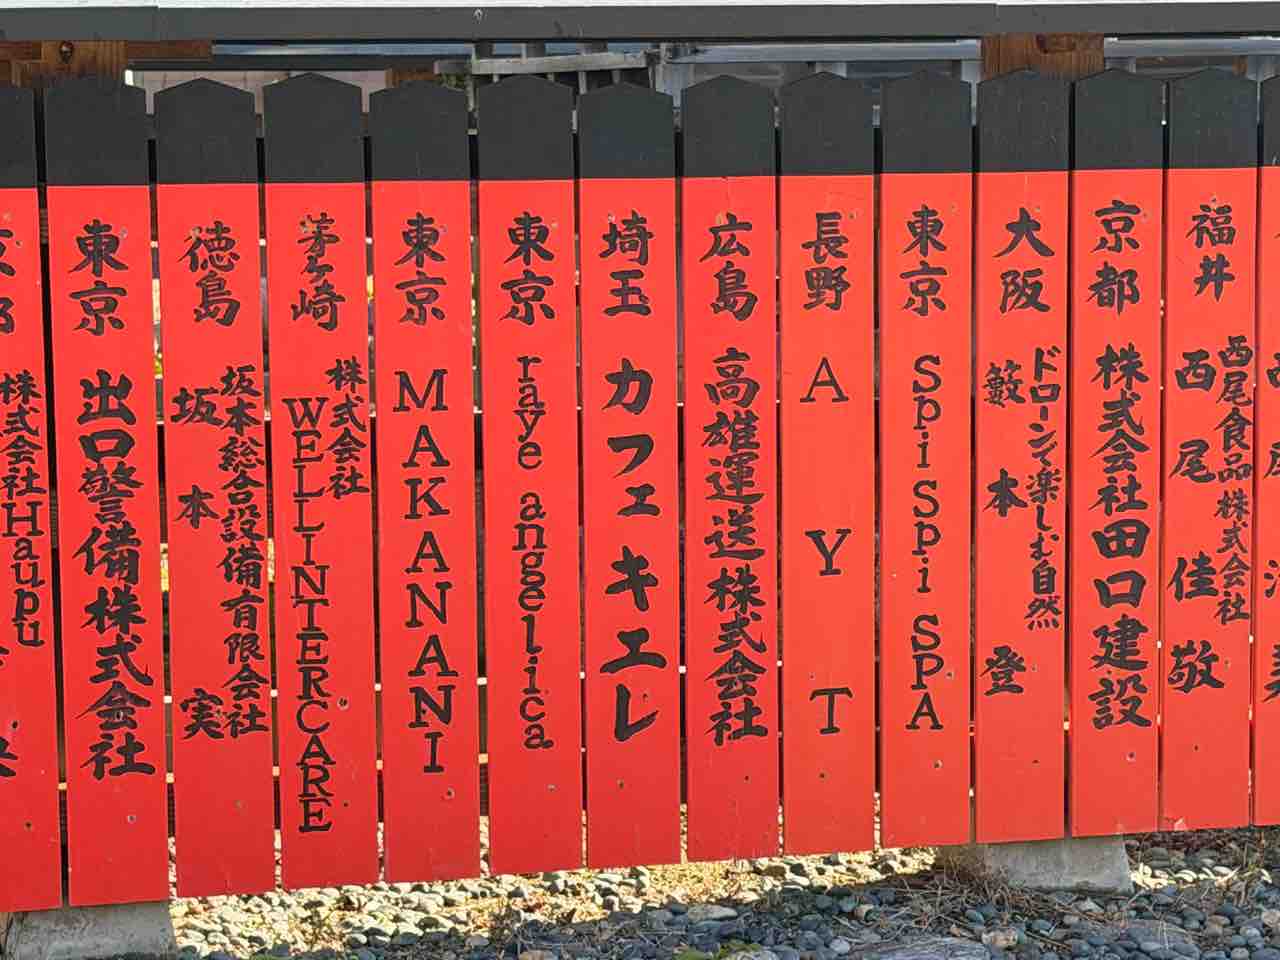 福井
西尾食品株式会社
西尾佳敬
京都 株式会社田口建設
大阪
ドローンで楽しむ自然
籔本登
東京 SpiSpi SPA
長野 AYT
広島 高雄運送株式会社
埼玉 カフェキエレ
東京 raye angelica
東京 MAKANANI
茅ヶ崎
株式会社
WELLINTERCARE
徳島
坂本総合設備有限会社
坂本実
東京 出口警備株式会社
株式会社Haupu